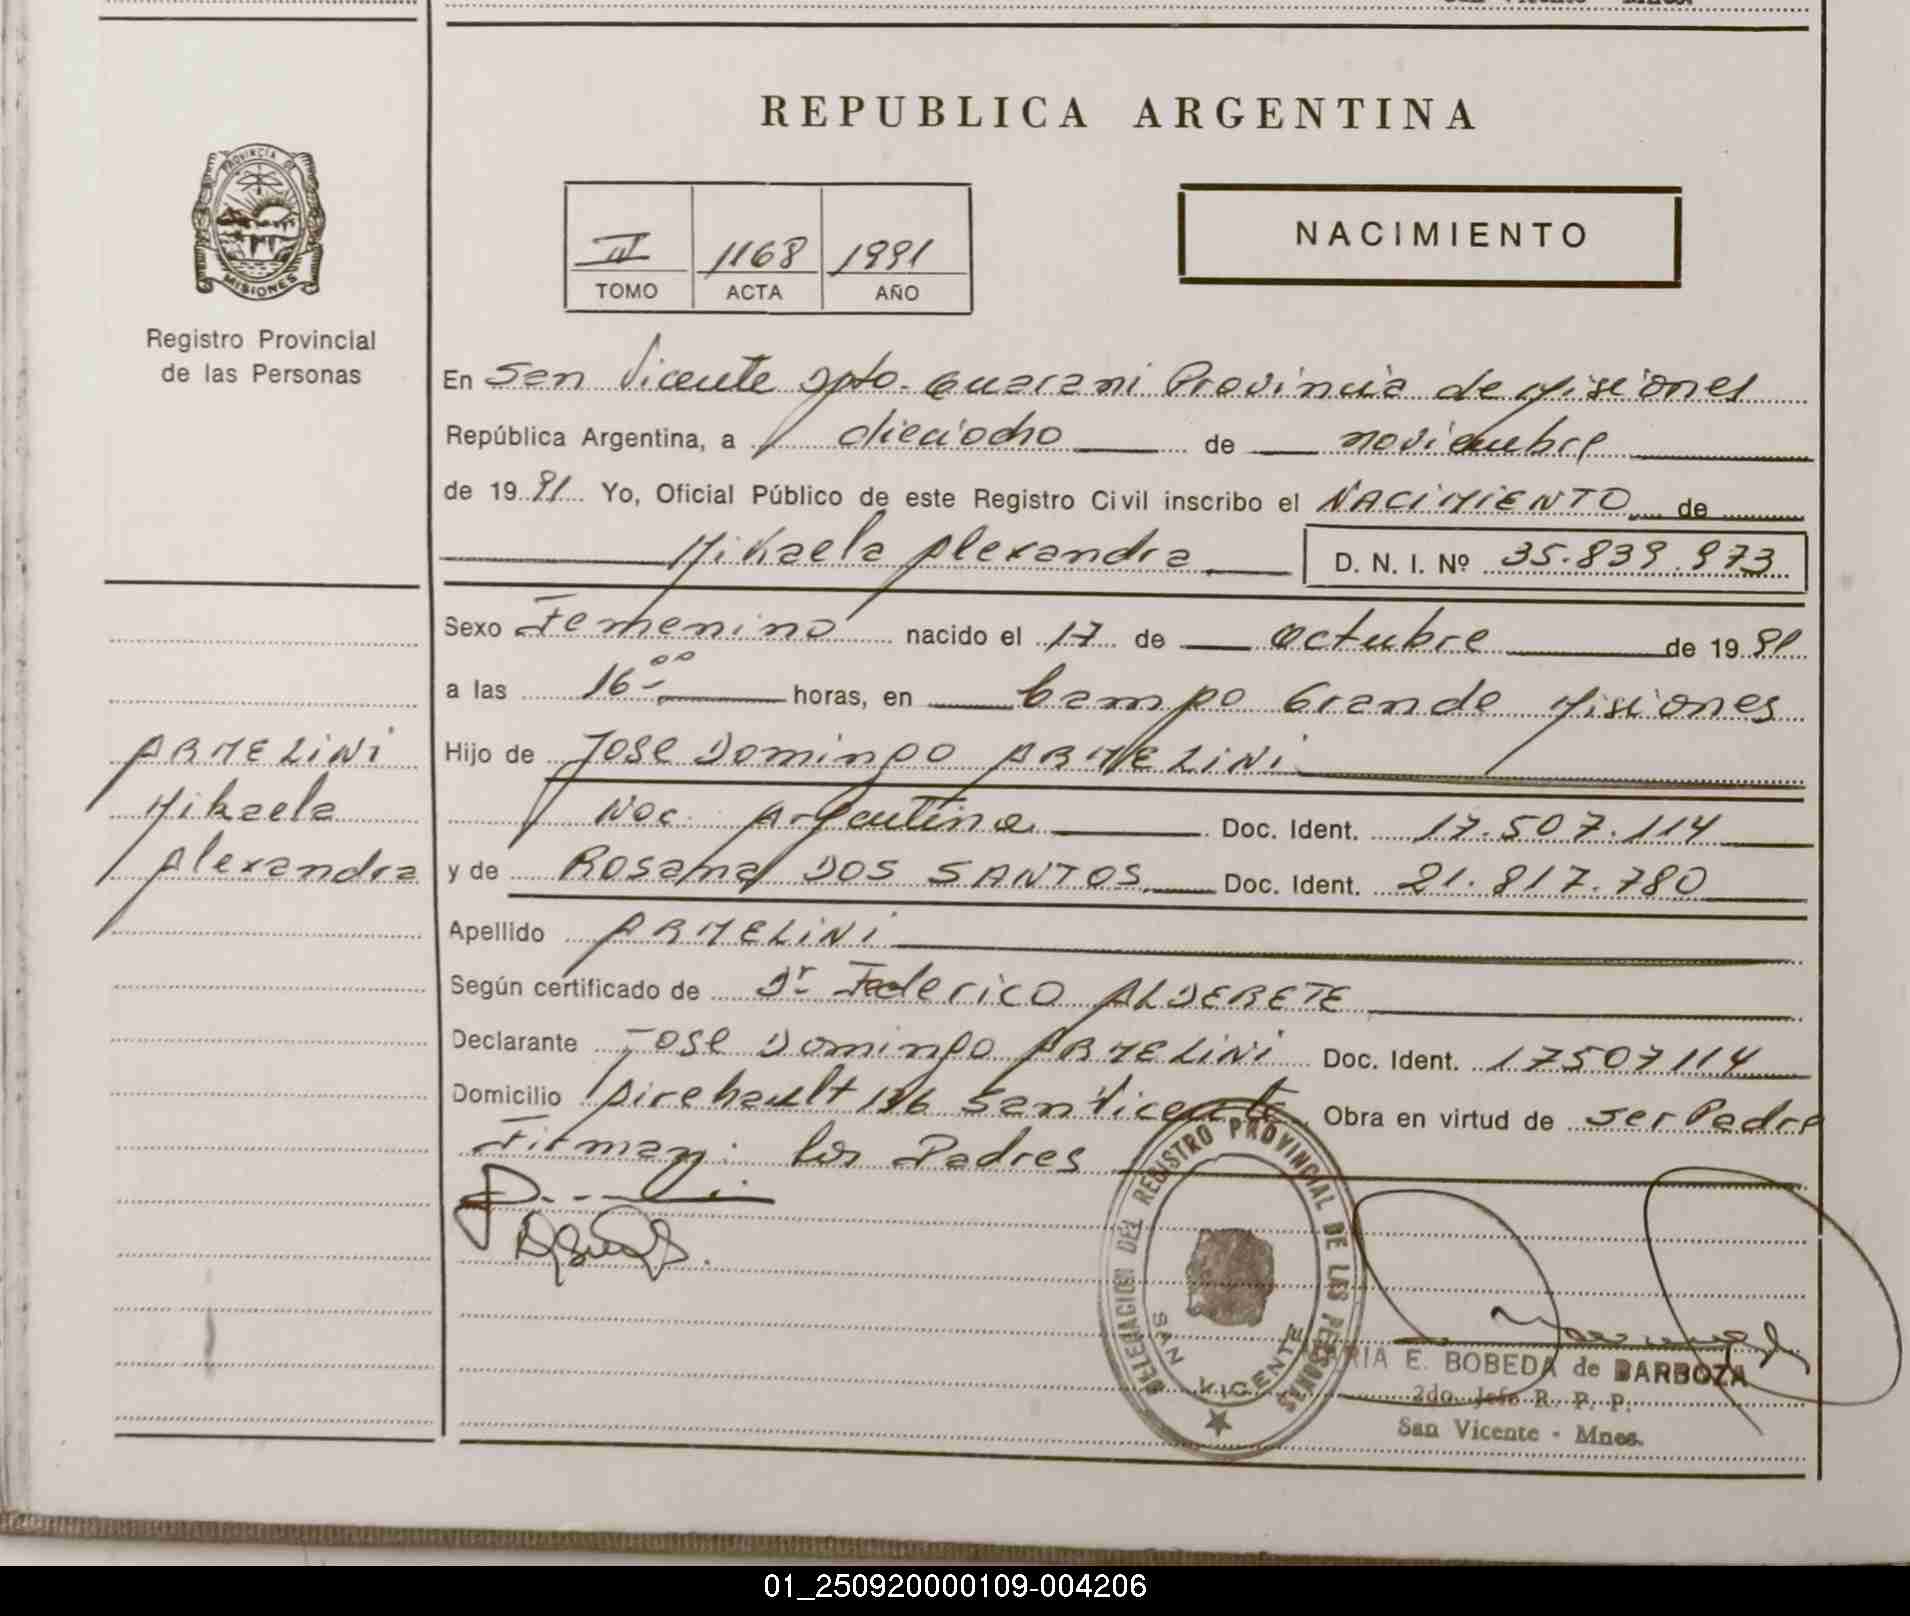 REPUBLICA ARGENTINA
PROVINCIA DE
MISIONES
Registro Provincial
de las Personas
1168 1991
TOMO ACTA AÑO
NACIMIENTO
En San Vicente Dpto. Guarani Provincia de Misiones
República Argentina, a dieciocho de noviembre
de 1991 Yo, Oficial Público de este Registro Civil inscribo el NACIMIENTO de
Mikaela Alexandra D. N. I. Nº 35.839.973
Sexo Femenino nacido el 17 de Octubre de 1991
a las 16-00 horas, en Campo Grande Misiones
ARMELINI
Mikaela
Alexandra
Hijo de JOSE DOMINGO ARMELINI
Nac. Argentina Doc. Ident. 17.507.114
y de ROSANA DOS SANTOS Doc. Ident. 21.817.780
Apellido ARMELINI
Según certificado de Dr Federico ALDERETE
Declarante JOSE DOMINGO ARMELINI Doc. Ident. 17507114
Domicilio San Vicente Obra en virtud de ser Padre
Firman: los Padres
DELEGACION DEL REGISTRO PROVINCIAL DE LAS PERSONAS
SAN VICENTE
MARIA E. BOBEDA de BARBOZA
2do. Jefe R. P. P.
San Vicente - Mnes.
01_250920000109-004206